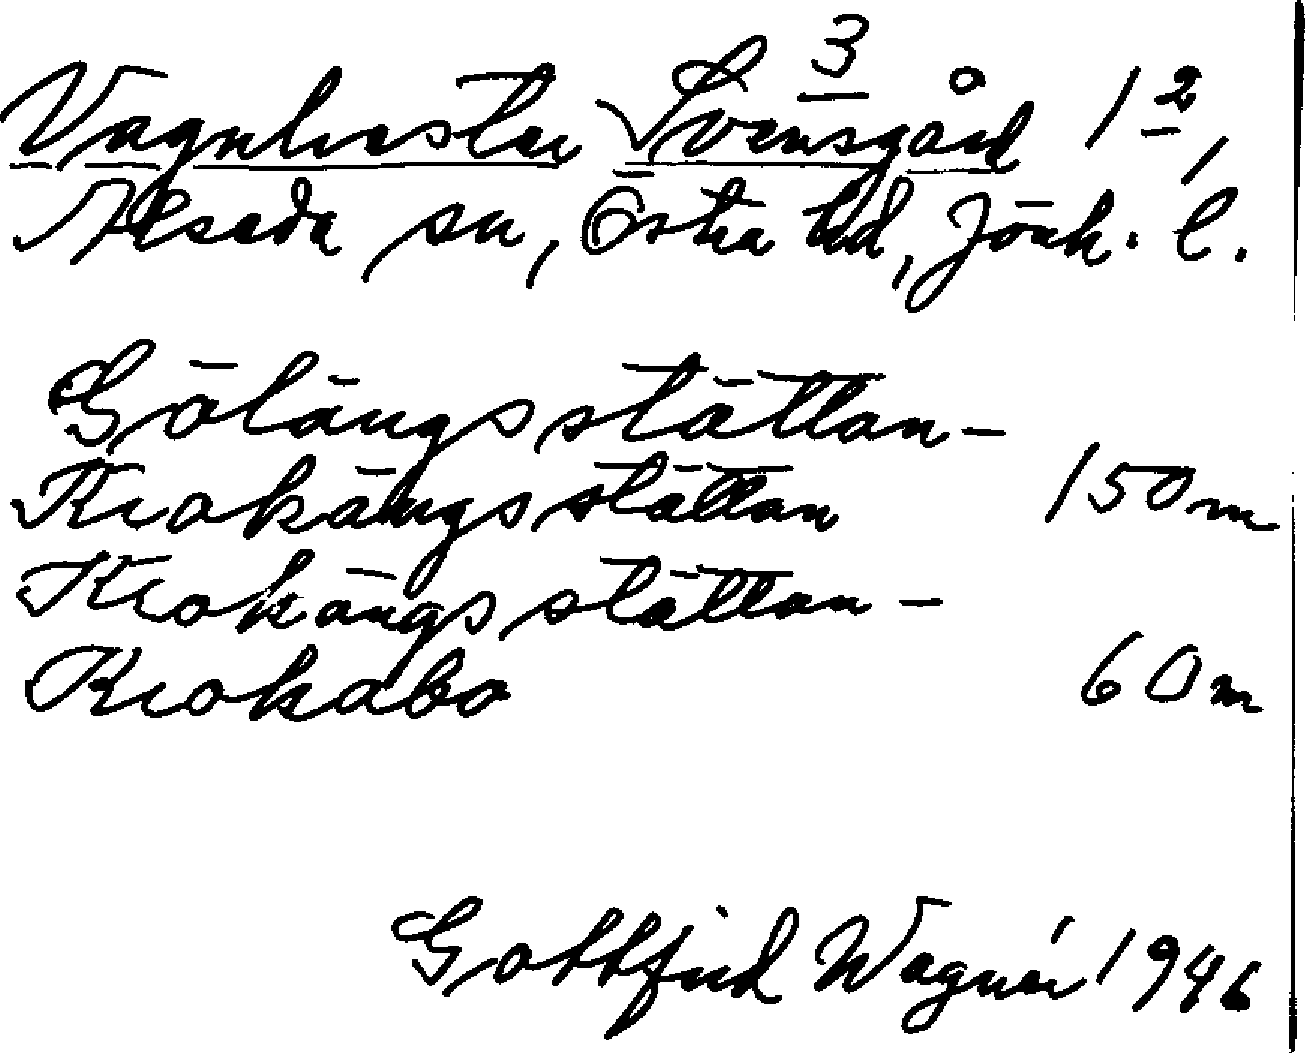 3
Vagnhester Svensgård 1 2,
Alseda sn, Östra hd, Jönk. l.
Gölängsstättan-
Krokängsstättan 150 m
Krokängsstättan -
Krokabo 60 m
Gottfrid Wagnér 1946